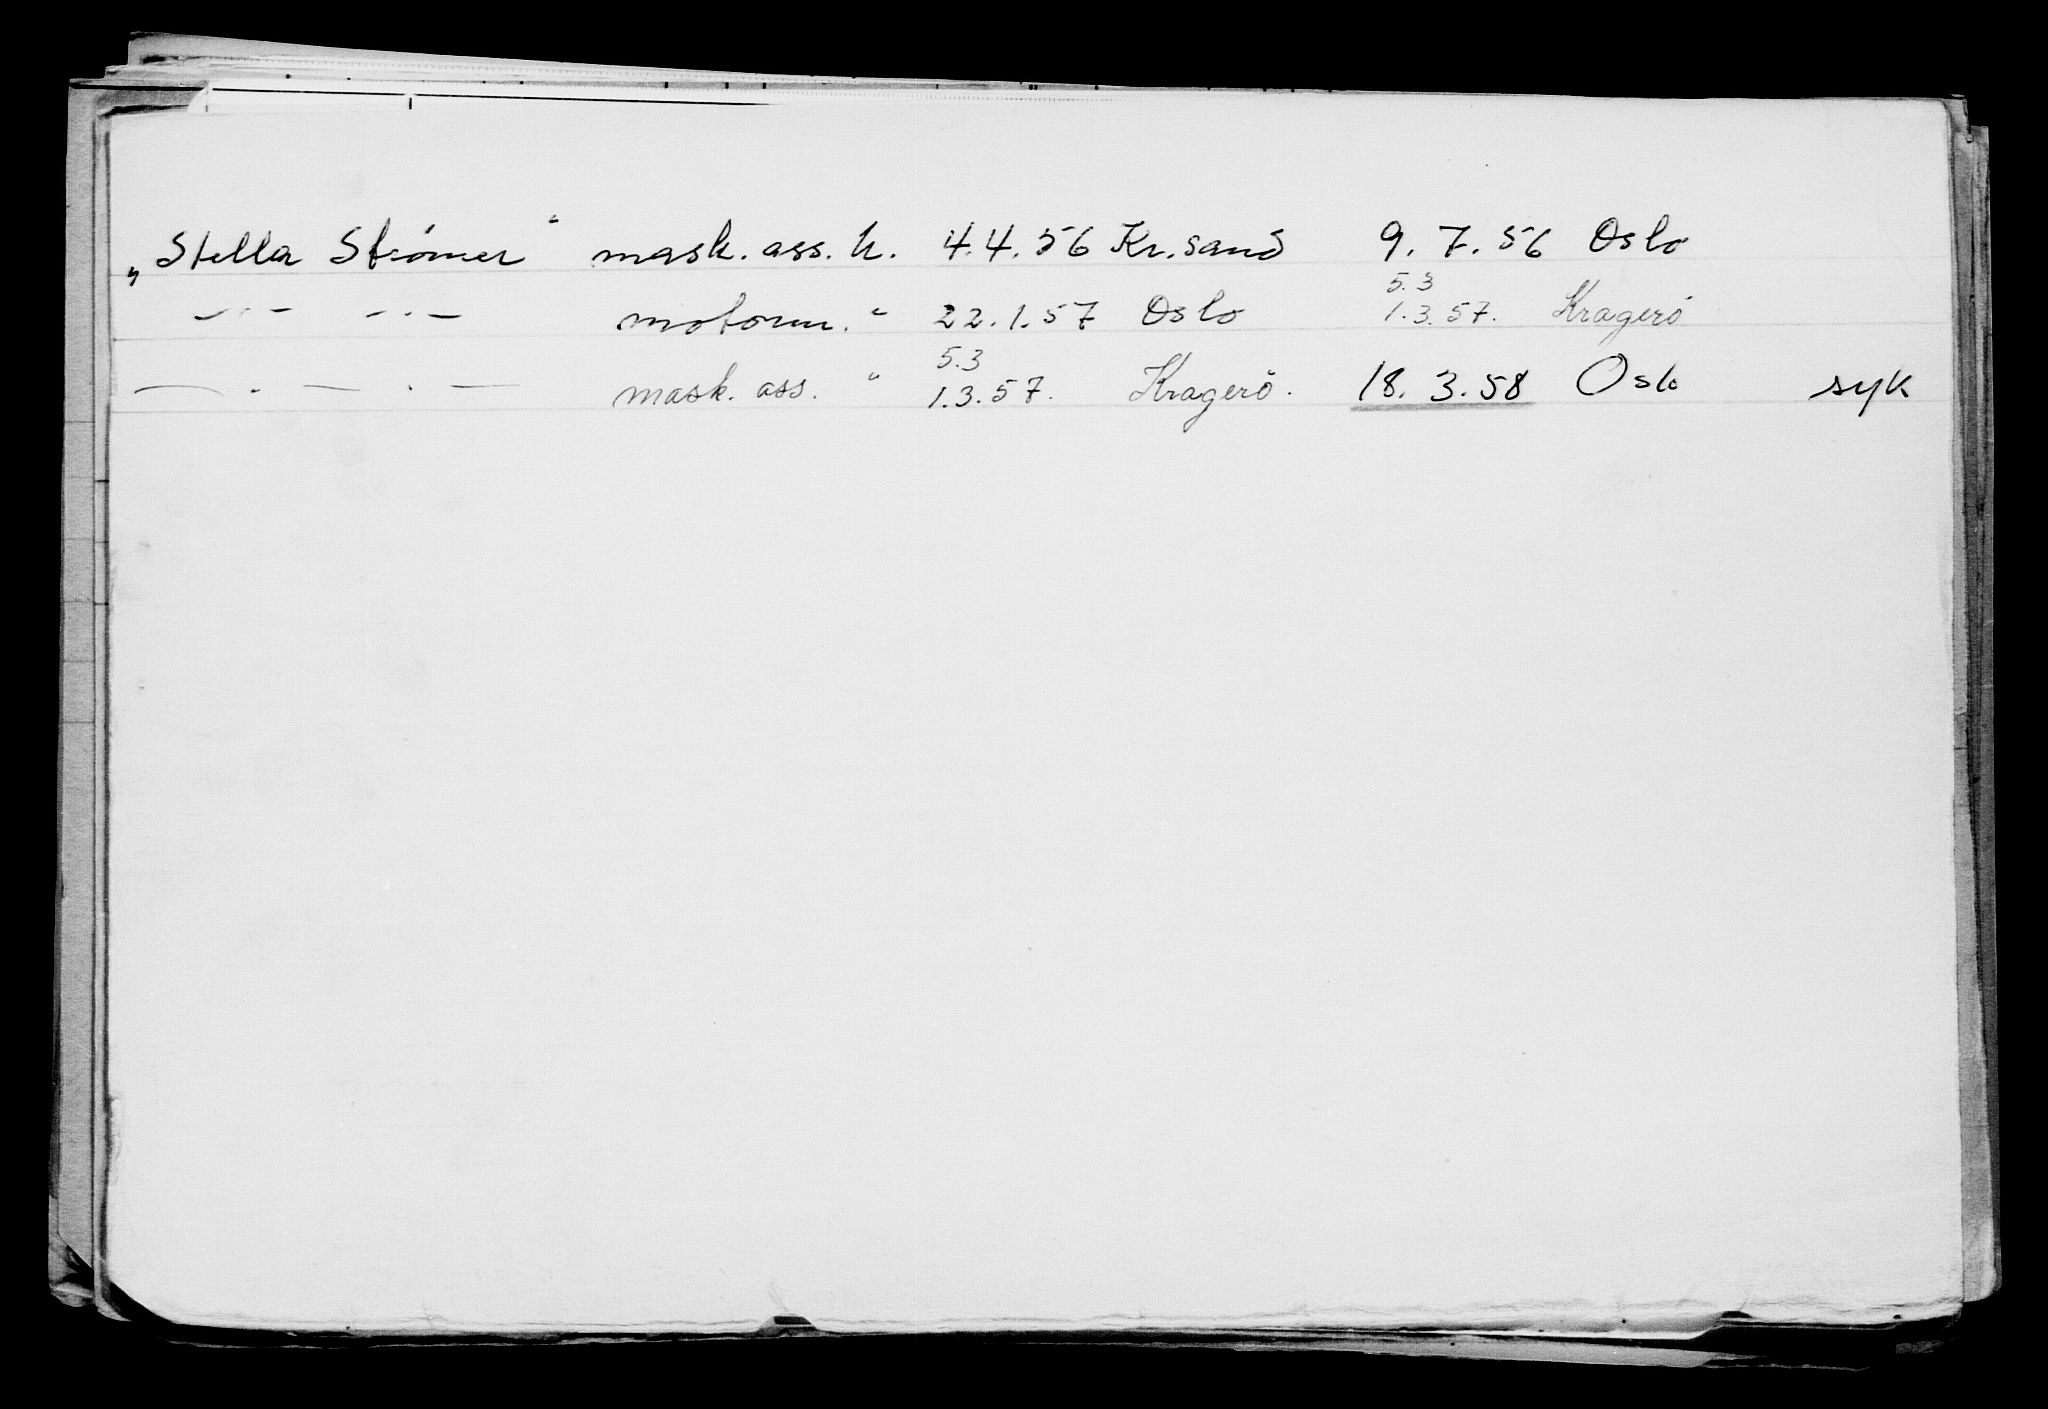 „Stella Strömer“ mask. ass. h. 4.4.56 Kr.sand 9.7.56 Oslo
5.3
—〃— —〃— motorm. " 22.1.57 Oslo 1.3.57. Kragerö
5.3
— . — . — mask. ass. " 1.3.57. Kragerö. 18.3.58 Oslo syk